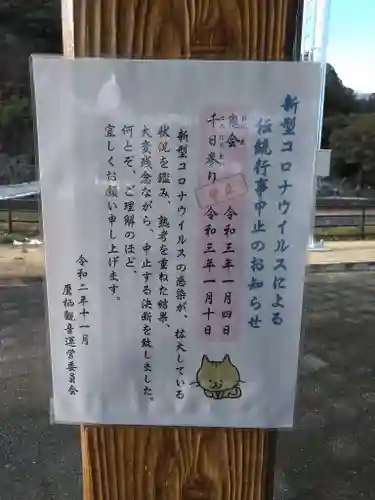 新型コロナウイルスによる
伝統行事中止のお知らせ
鬼会　令和三年一月四日
千日参り　令和三年一月十日
中止
新型コロナウイルスの感染が、拡大している
状況を鑑み、熟考を重ねた結果、
大変残念ながら、中止する決断を致しました。
何とぞ、ご理解のほど、
宜しくお願い申し上げます。
令和二年十一月
観音運営委員会